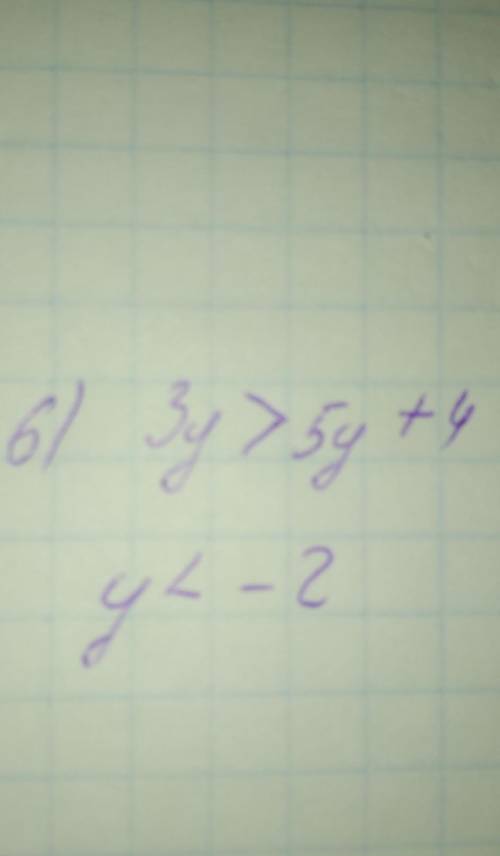 б) 3y > 5y + 4
y < - 2